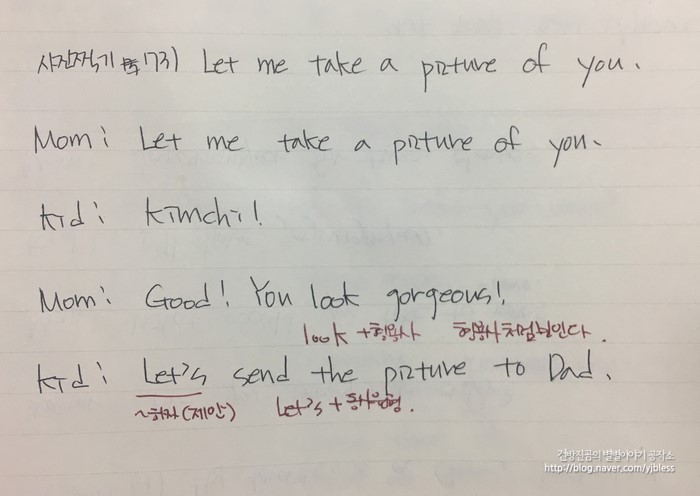 사진찍기 173) Let me take a picture of you.
Mom: Let me take a picture of you.
Kid: Kimchi!
Mom: Good! You look gorgeous!
look + 형용사 형용사처럼 보인다.
Kid: Let's send the picture to Dad.
~하자 (제안) Let's + 동사원형.
건방진곰의 별별이야기 공작소
http://blog.naver.com/yjbless